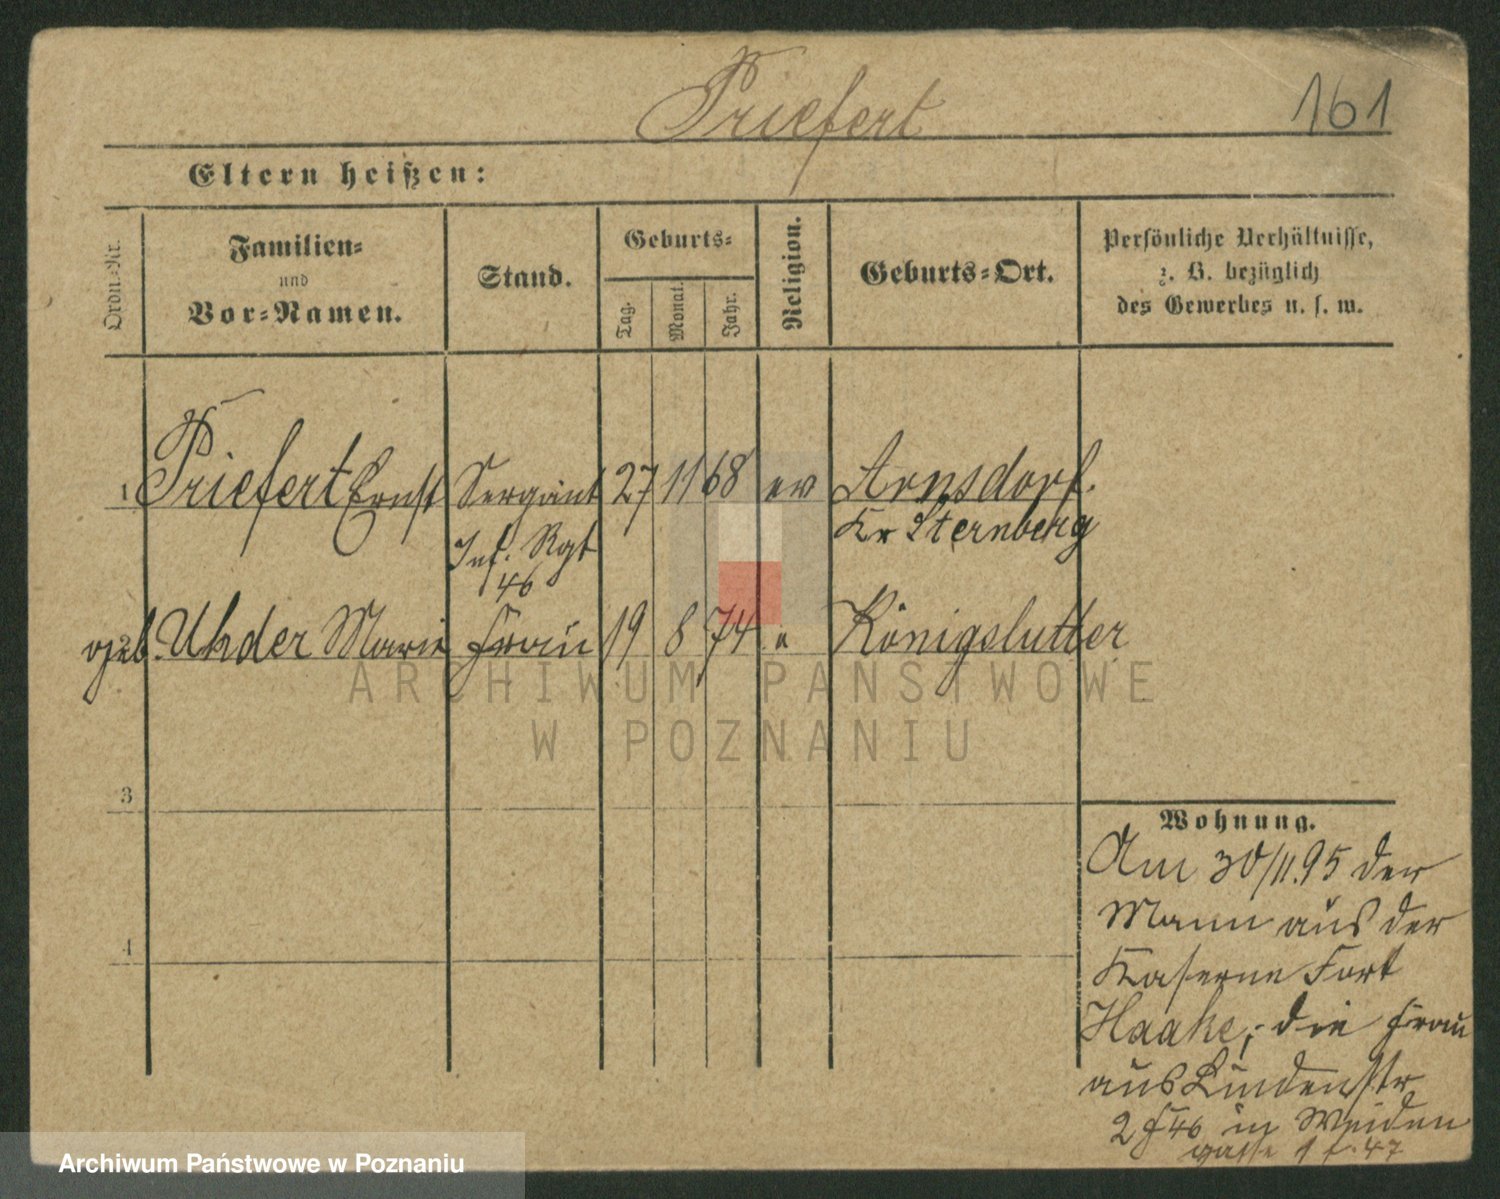 Priefert
161
Eltern heißen:
Ordn.-Nr.
Familien-
und
Vor-Namen.
Stand.
Geburts-
Tag.
Monat.
Jahr.
Religion.
Geburts-Ort.
Persönliche Verhältnisse,
z. B. bezüglich
des Gewerbes u. s. w.
1 Priefert Ernst Sergant 27 11 68 ev Arnsdorf.
Inf. Rgt Kr Sternberg
46
geb. Uhder Marie Frau 19 8 74 e Königslutter
ARCHIWUM PAŃSTWOWE
W POZNANIU
3
Wohnung.
Am 30/11.95 der
Mann aus der
4
Kaserne Fort
Haake, die Frau
aus Lindenstr
2 F 46 in Weiden
gasse 1 f. 47
Archiwum Państwowe w Poznaniu